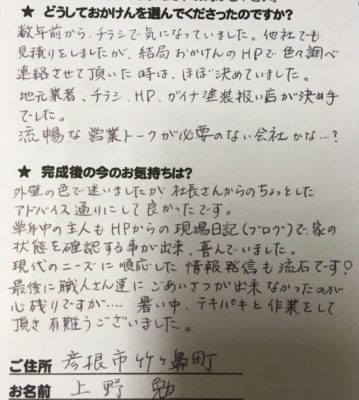 ★ どうしておかけんを選んでくださったのですか?
数年前から、チラシで気になっていました。他社でも
見積りをしましたが、結局おかけんのHPで色々調べ
連絡させて頂いた時は、ほぼ決めていました。
地元業者、チラシ、HP、ガイナ塗装扱い店が決め手
でした。
流暢な営業トークが必要のない会社かな…?
★ 完成後の今のお気持ちは?
外壁の色で迷いましたが社長さんからのちょっとした
アドバイス通りにして良かったです。
単身中の主人もHPからの現場日記(ブログ)で、家の
状態を確認する事が出来、喜んでいました。
現代のニーズに順応した情報発信も流石です?
最後に職人さん達にごあいさつが出来なかったのが
心残りですが…. 暑い中、テキパキと作業をして
頂き有難うございました。
ご住所 彦根市竹ヶ鼻町
お名前 上野 勉